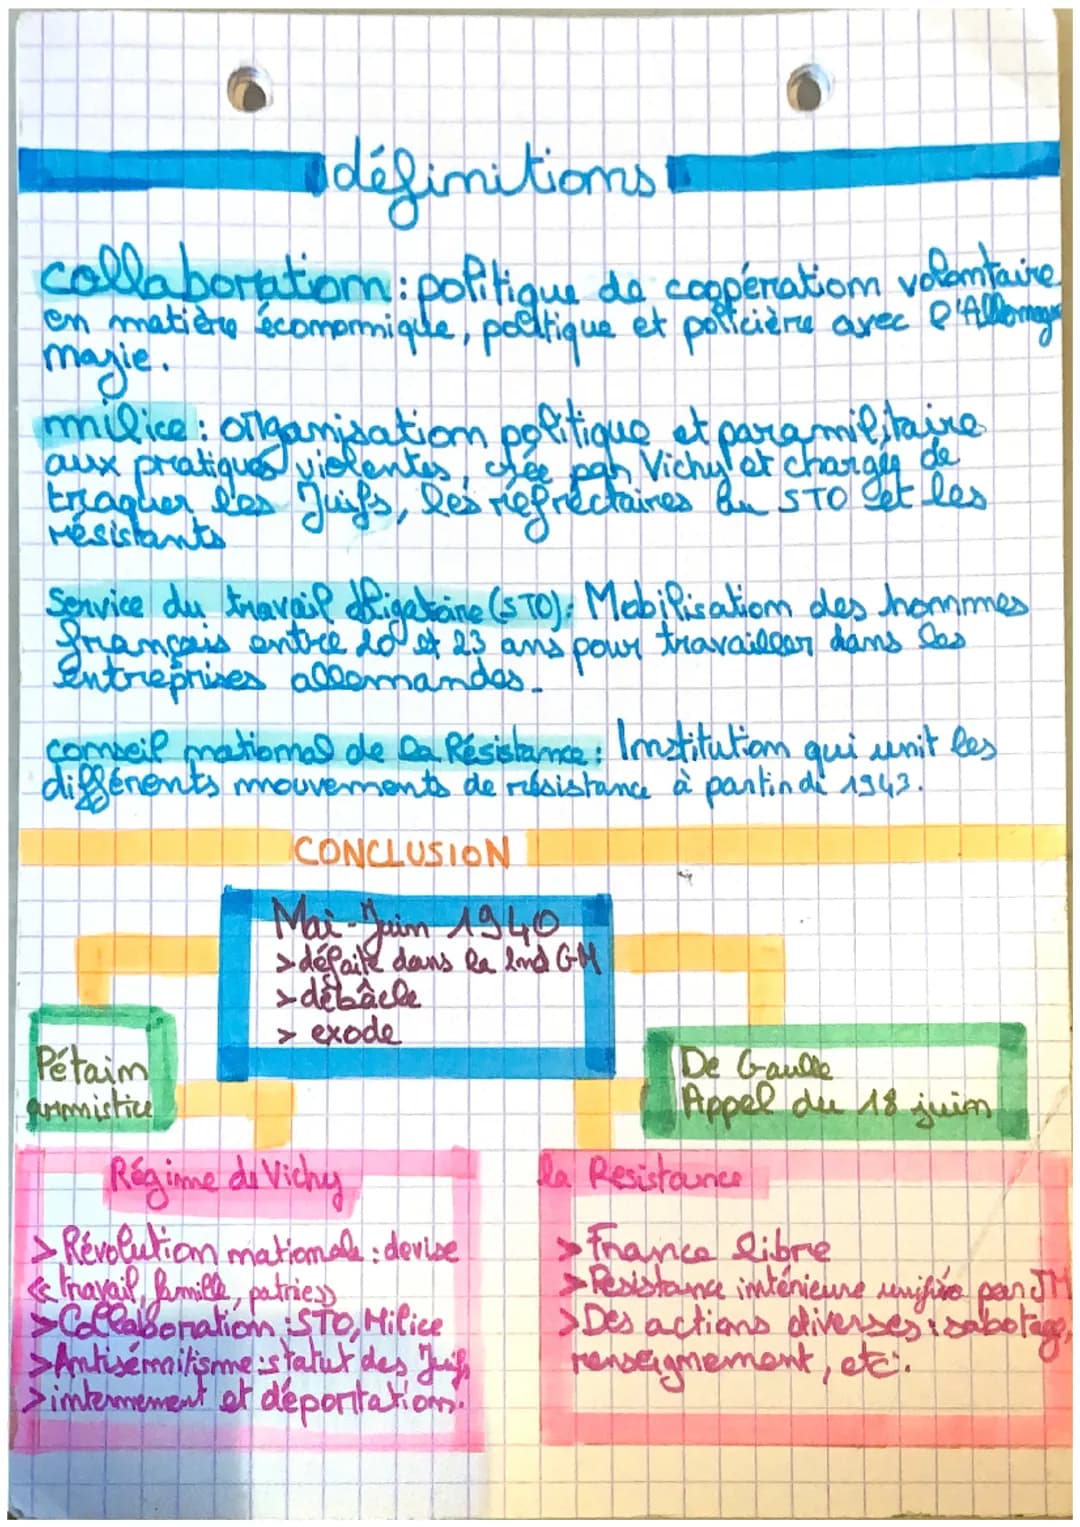 définitions
collaboration : politique de coopération volontaire
en matière économique, politique et policière avec l'Allemagne
nazie.
milice : organisation politique et paramilitaire
aux pratiques violentes, créée par Vichy et chargée de
traquer les Juifs, les réfrectaires du STO et les
résistants
Service du travail obligatoire (STO): Mobilisation des hommes
français entre 20 et 23 ans pour travailler dans les
entreprises allemandes.
conseil national de la Résistance : Institution qui unit les
différents mouvements de résistance à partir de 1943.
CONCLUSION
Mai-Juin 1940
> défaite dans la 2nd GM
> débâcle
> exode
Pétain
armistice
De Gaulle
Appel du 18 juin
Régime de Vichy
> Révolution nationale : devise
« travail, famille, patrie »
> Collaboration : STO, Milice
> Antisémitisme : statut des Juifs
> internement et déportation.
la Resistance
> France libre
> Résistance intérieure unifiée par JM
> Des actions diverses : sabotage,
renseignement, etc.